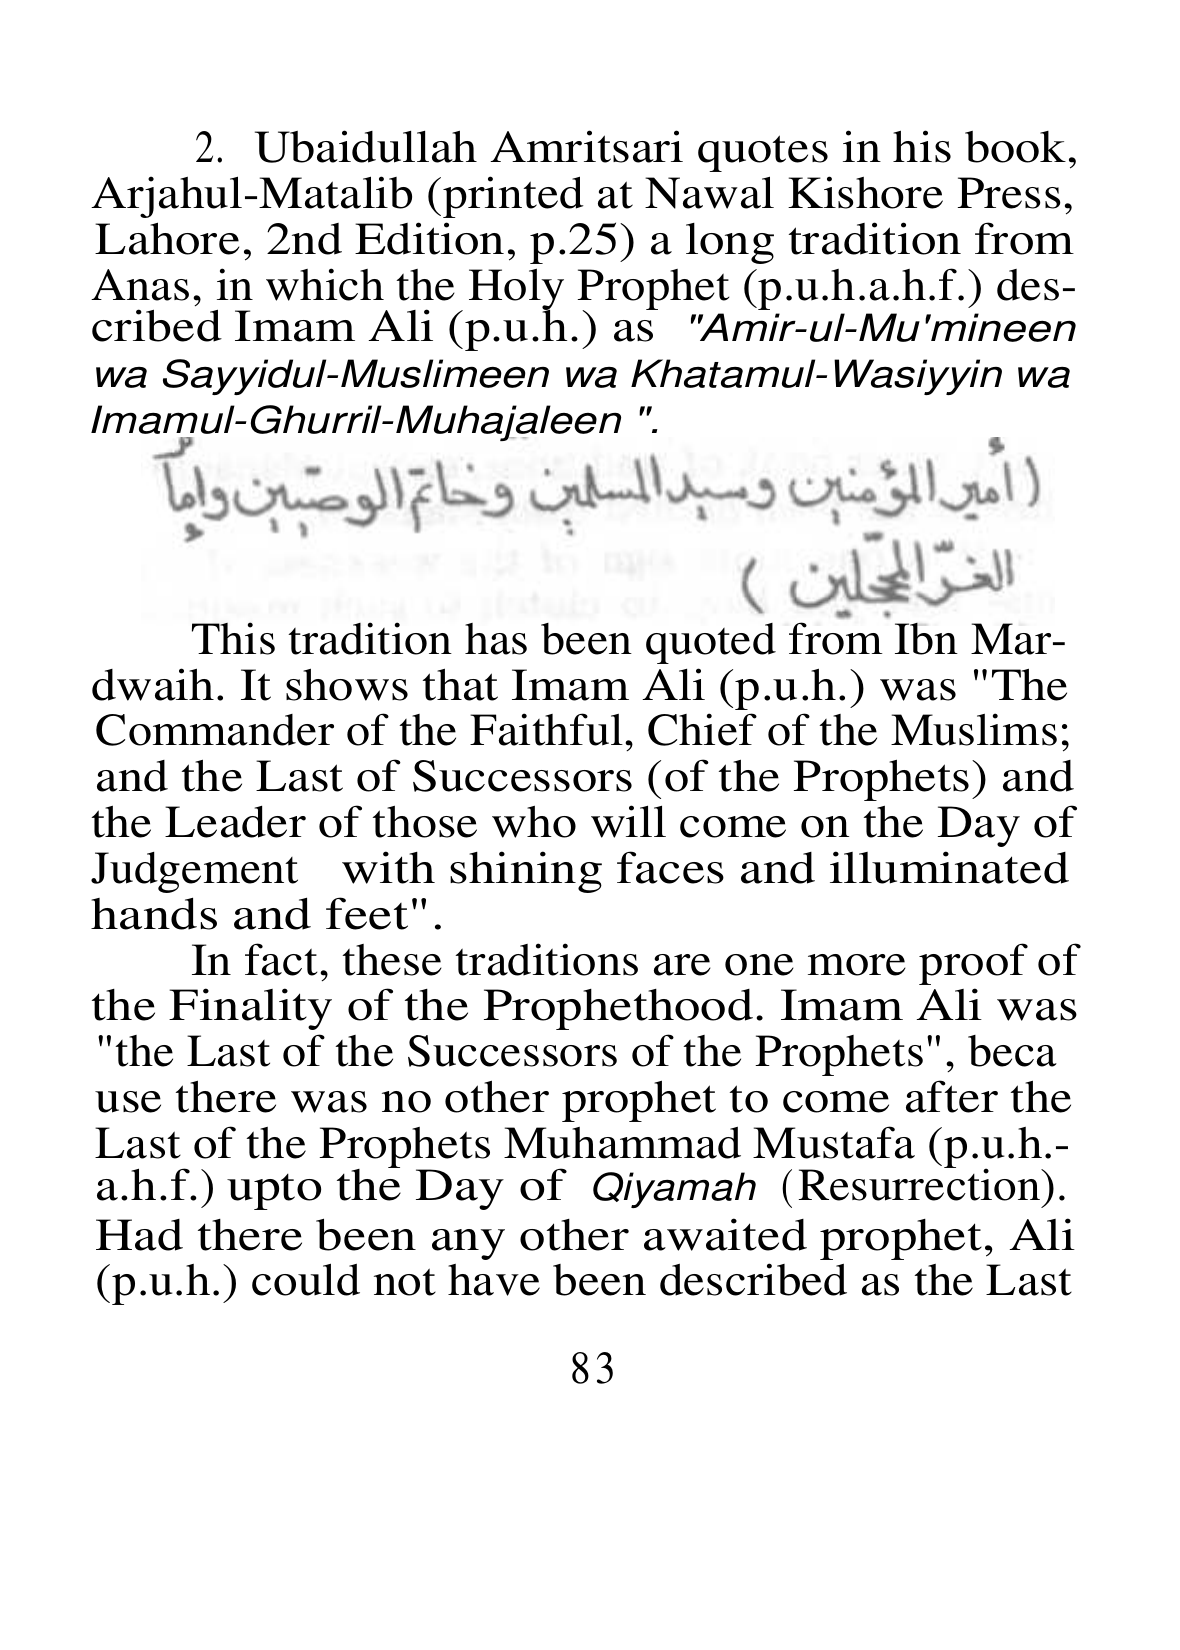 2. Ubaidullah Amritsari quotes in his book,
Arjahul-Matalib (printed at Nawal Kishore Press,
Lahore, 2nd Edition, p.25) a long tradition from
Anas, in which the Holy Prophet (p.u.h.a.h.f.) des-
cribed Imam Ali (p.u.h.) as "Amir-ul-Mu'mineen
wa Sayyidul-Muslimeen wa Khatamul-Wasiyyin wa
Imamul-Ghurril-Muhajaleen ".
(أمير المؤمنين وسيد المسلمين وخاتم الوصيّين وإمام
الغرّ المحجّلين )
This tradition has been quoted from Ibn Mar-
dwaih. It shows that Imam Ali (p.u.h.) was "The
Commander of the Faithful, Chief of the Muslims;
and the Last of Successors (of the Prophets) and
the Leader of those who will come on the Day of
Judgement with shining faces and illuminated
hands and feet".
In fact, these traditions are one more proof of
the Finality of the Prophethood. Imam Ali was
"the Last of the Successors of the Prophets", beca
use there was no other prophet to come after the
Last of the Prophets Muhammad Mustafa (p.u.h.-
a.h.f.) upto the Day of Qiyamah (Resurrection).
Had there been any other awaited prophet, Ali
(p.u.h.) could not have been described as the Last
83